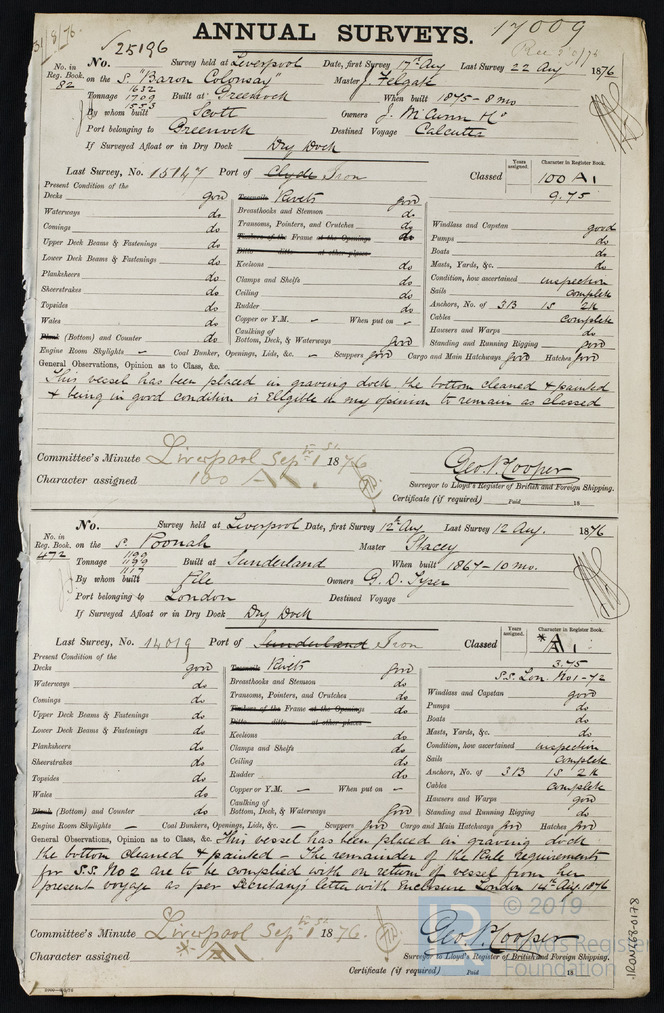 31/8/76
ANNUAL SURVEYS. 17009
No. 25196 Survey held at Liverpool Date, first Survey 17th Aug Last Survey 22 Aug 1876
No. in Reg. Book. 82 on the S. "Baron Colonsay" Master J. Felgate
Tonnage 1632 1709 1553 Built at Greenock When built 1875-8 mo
By whom built Scott Owners J. McCunn & Co
Port belonging to Greenock Destined Voyage Calcutta
If Surveyed Afloat or in Dry Dock Dry Dock
Last Survey, No. 15147 Port of Clyde Iron Classed Years assigned. Character in Register Book. 100 A1
9.75
Present Condition of the
Decks good Treenails Rivets good
Waterways do Breasthooks and Stemson do
Comings do Transoms, Pointers, and Crutches do Windlass and Capstan good
Upper Deck Beams & Fastenings do Timbers of the Frame at the Openings do Pumps do
Ditto ditto at other places Boats do
Lower Deck Beams & Fastenings do Keelsons do Masts, Yards, &c. do
Planksheers do Clamps and Shelfs do Condition, how ascertained inspection
Sheerstrakes do Ceiling do Sails complete
Topsides do Rudder do Anchors, No. of 3B 1S 2K
Wales do Copper or Y.M. - When put on - Cables complete
Plank (Bottom) and Counter do Caulking of Bottom, Deck, & Waterways good Hawsers and Warps do
Standing and Running Rigging good
Engine Room Skylights - Coal Bunker, Openings, Lids, &c. - Scuppers good Cargo and Main Hatchways good Hatches good
General Observations, Opinion as to Class, &c.
This vessel has been placed in graving dock the bottom cleaned & painted
& being in good condition is Eligible in my opinion to remain as classed
Committee's Minute Liverpool Sep 1st 1876
Character assigned 100 A1.
Geo. P. Cooper
Surveyor to Lloyd's Register of British and Foreign Shipping.
Certificate (if required) Paid 18
No. Survey held at Liverpool Date, first Survey 12th Aug Last Survey 12 Aug. 1876
No. in Reg. Book. 472 on the S. Poonah Master Stacey
Tonnage 1199 1199 1117 Built at Sunderland When built 1867-10 mo.
By whom built Pile Owners G. D. Tyser
Port belonging to London Destined Voyage
If Surveyed Afloat or in Dry Dock Dry Dock
Last Survey, No. 14019 Port of Sunderland Iron Classed Years assigned. Character in Register Book. *A1
3.75
S.S. Lon. No 1-72
Present Condition of the
Decks good Treenails Rivets good
Waterways do Breasthooks and Stemson do Windlass and Capstan good
Comings do Transoms, Pointers, and Crutches do Pumps do
Upper Deck Beams & Fastenings do Timbers of the Frame at the Openings Boats do
Lower Deck Beams & Fastenings do Ditto ditto at other places Masts, Yards, &c. do
Planksheers do Keelsons do Condition, how ascertained inspection
Sheerstrakes do Clamps and Shelfs do Sails complete
Topsides do Ceiling do Anchors, No. of 3B 1S 2K
Wales do Rudder do Cables complete
Plank (Bottom) and Counter do Copper or Y.M. - When put on - Hawsers and Warps good
Caulking of Bottom, Deck, & Waterways good Standing and Running Rigging do
Engine Room Skylights - Coal Bunkers, Openings, Lids, &c. - Scuppers good Cargo and Main Hatchways good Hatches good
General Observations, Opinion as to Class, &c. This vessel has been placed in graving dock
the bottom cleaned & painted - The remainder of the Rule requirements
for S.S. No 2 are to be complied with on return of vessel from her
present voyage as per Secretary's letter with Enclosure London 14th Aug. 1876
Committee's Minute Liverpool Sep 1st 1876.
Character assigned *A1
Geo. P. Cooper
Surveyor to Lloyd's Register of British and Foreign Shipping.
Certificate (if required) Paid 18
© 2019
Lloyd's Register
Foundation
IRON468-0178